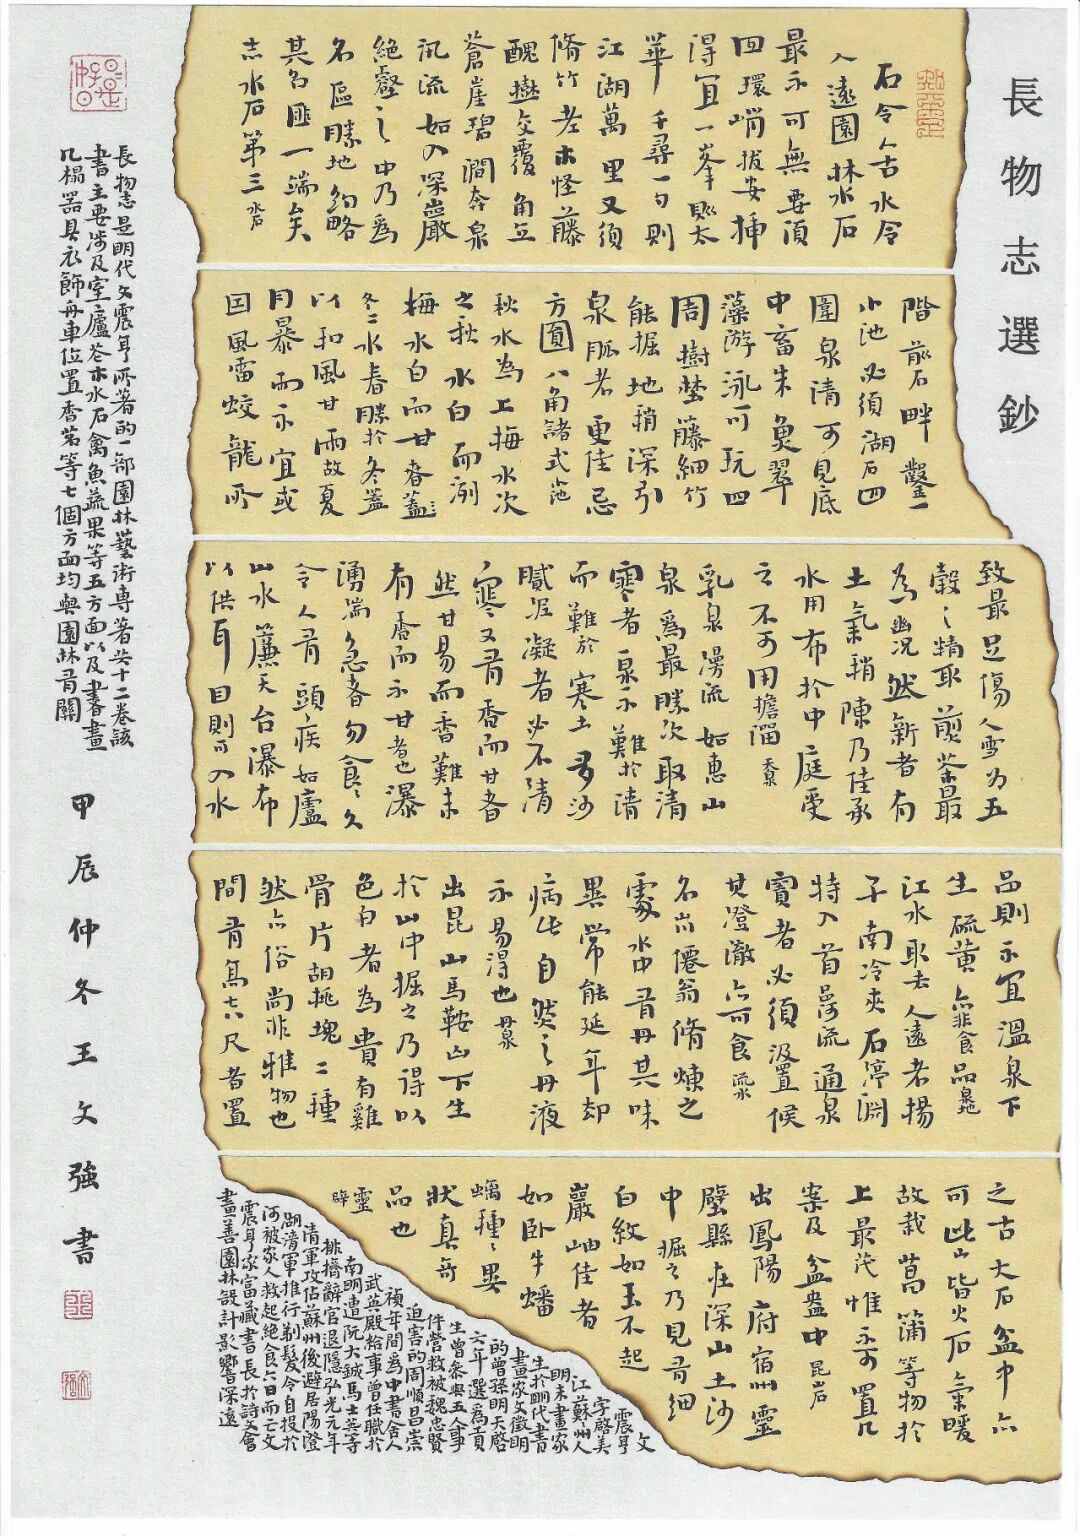 長物志選鈔
石令人古水令
人遠園林水石
最不可無要須
回環峭拔安插
得宜一峯則太
華千尋一勺則
江湖萬里又須
脩竹老木怪藤
醜樹交覆角立
蒼崖碧澗奔泉
汛流如入深巖
絕壑之中乃爲
名區勝地約略
其名匪一端矣
志水石第三 水石
階前石畔鑿一
小池必須湖石四
圍泉清可見底
中畜朱魚翠
藻游泳可玩四
周樹埜藤細竹
能掘地稍深引
泉脈者更佳忌
方圓八角諸式
秋水為上梅水次
之秋水白而洌
梅水白而甘春
冬二水春勝於冬蓋
以和風甘雨故夏
月暴雨不宜或
因風雷蛟龍所
致最足傷人雪為五
穀之精取煎茶最
為幽况然新者有
土氣稍陳乃佳承
水用布於中庭受
之不可用簷溜 天泉
乳泉漫流如惠山
泉爲最勝次取清
寒者泉不難於清
而難於寒土多沙
膩泥凝者必不清
寒又有香而甘者
然甘易而香難未
有香而不甘者也瀑
湧湍急者勿食食久
令人有頭疾如廬
山水簾天台瀑布
以供耳目則可入水
品則不宜溫泉下
生硫黃亦非食品 地泉
江水取去人遠者揚
子南泠夾石渟淵
特入首品河流通泉
竇者必須汲置候
其澄澈亦可食 流水
名山僊翁脩煉之
處水中有丹其味
異常能延年却
病此自然之丹液
不易得也 丹泉
出昆山馬鞍山下生
於山中掘之乃得以
色白者為貴有雞
骨片胡桃塊二種
然亦俗尚非雅物也
間有高七八尺者置
之古大石盆中亦
可此山皆火石氣暖
故栽菖蒲等物於
上最茂惟不可置几
案及盆盎中 昆石
出鳳陽府宿州靈
壁縣在深山土沙
中掘之乃見有細
白紋如玉不起
巖岫佳者
如臥牛蟠
螭種種異
狀真奇
品也
靈壁
文
震亨
字啓美
江蘇州人
明末畫家
生於明代書
畫家文徵明
的曾孫明天啓
六年選爲貢
生曾參與五人事
件營救被魏忠賢
迫害的周順昌崇
禎年間爲中書舍人
武英殿給事曾任職於
南明遭阮大鋮馬士英等
排擠辭官退隱弘光元年
清軍攻佔蘇州後避居陽澄
湖清軍推行剃髮令自投於
河被家人救起絕食六日而亡文
震亨家富藏書長於詩文會
畫善園林設計影響深遠
長物志是明代文震亨所著的一部園林藝術專著共十二卷該
書主要涉及室廬花木水石禽魚蔬果等五方面以及書畫
几榻器具衣飾舟車位置香茗等七個方面均與園林有關
甲辰仲冬王文強書